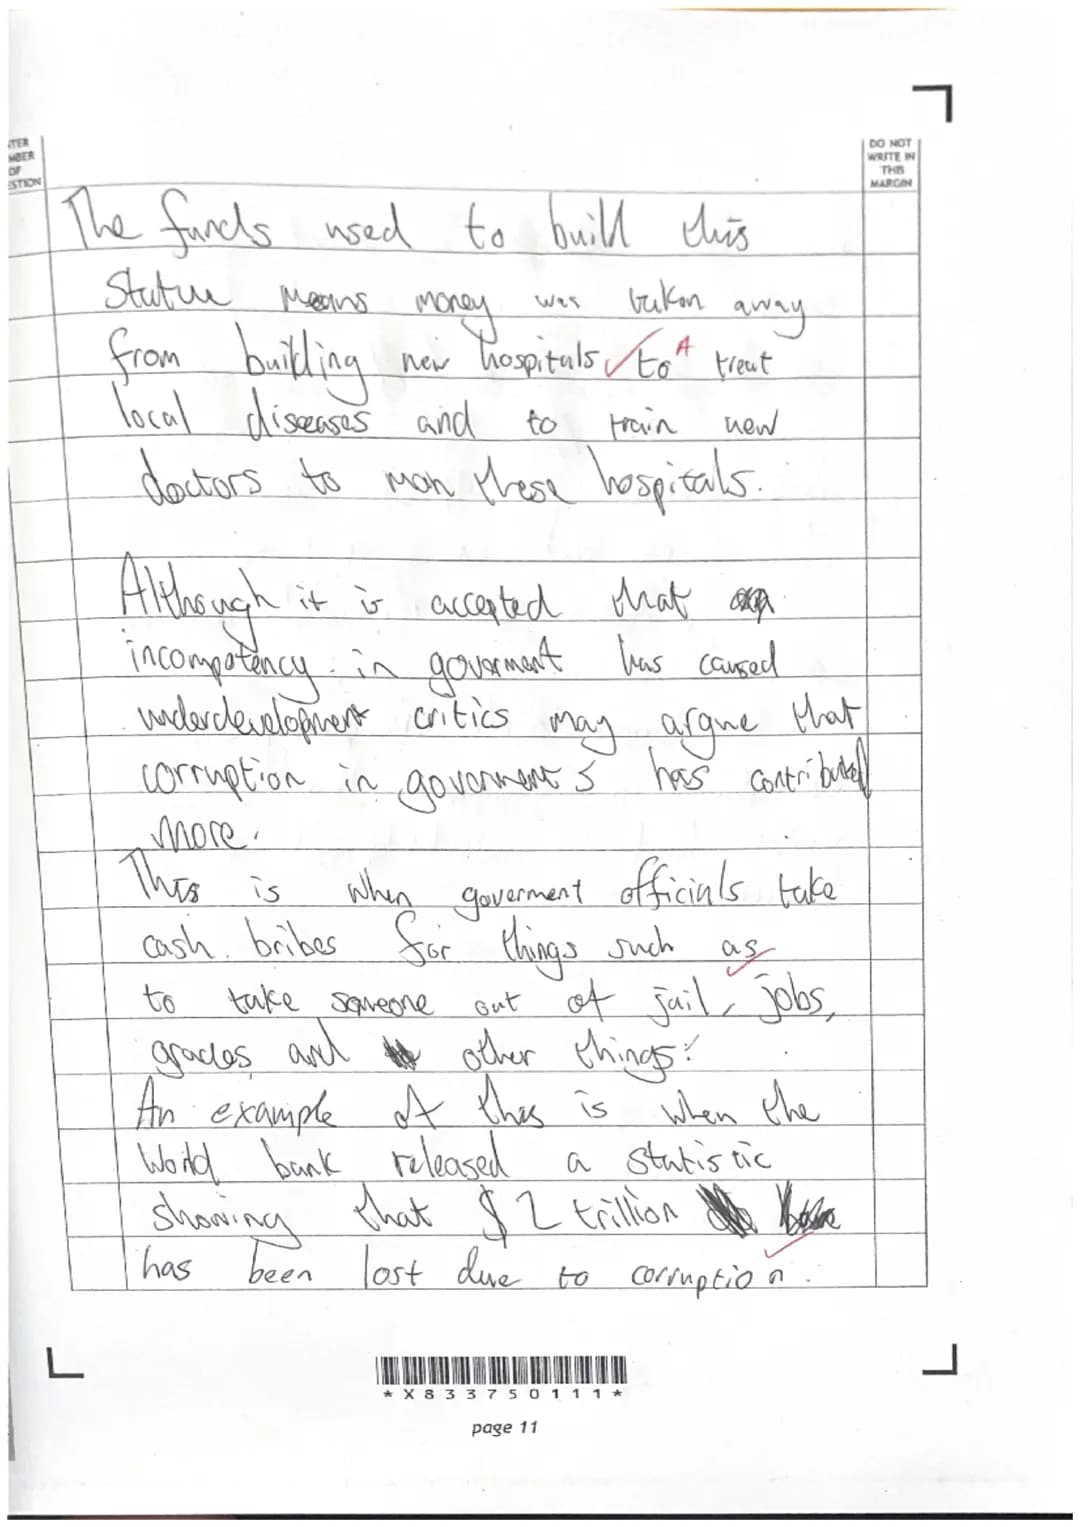 NTER
MBER
OF
ESTION
DO NOT
WRITE IN
THIS
MARGIN
The funds used to build this
Statue means money was taken away
from building new hospitals to A treat
local diseases and to train new
doctors to man these hospitals.
Although it is accepted that
incompetency in goverment has caused
underdevelopment critics may argue that
corruption in governments has contributed
more.
This is when goverment officials take
cash bribes for things such as
to take someone out of jail, jobs,
grades and other things.
An example of this is when the
World bank released a statistic
showing that $2 trillion
has been lost due to corruption.
*X833750111*
page 11